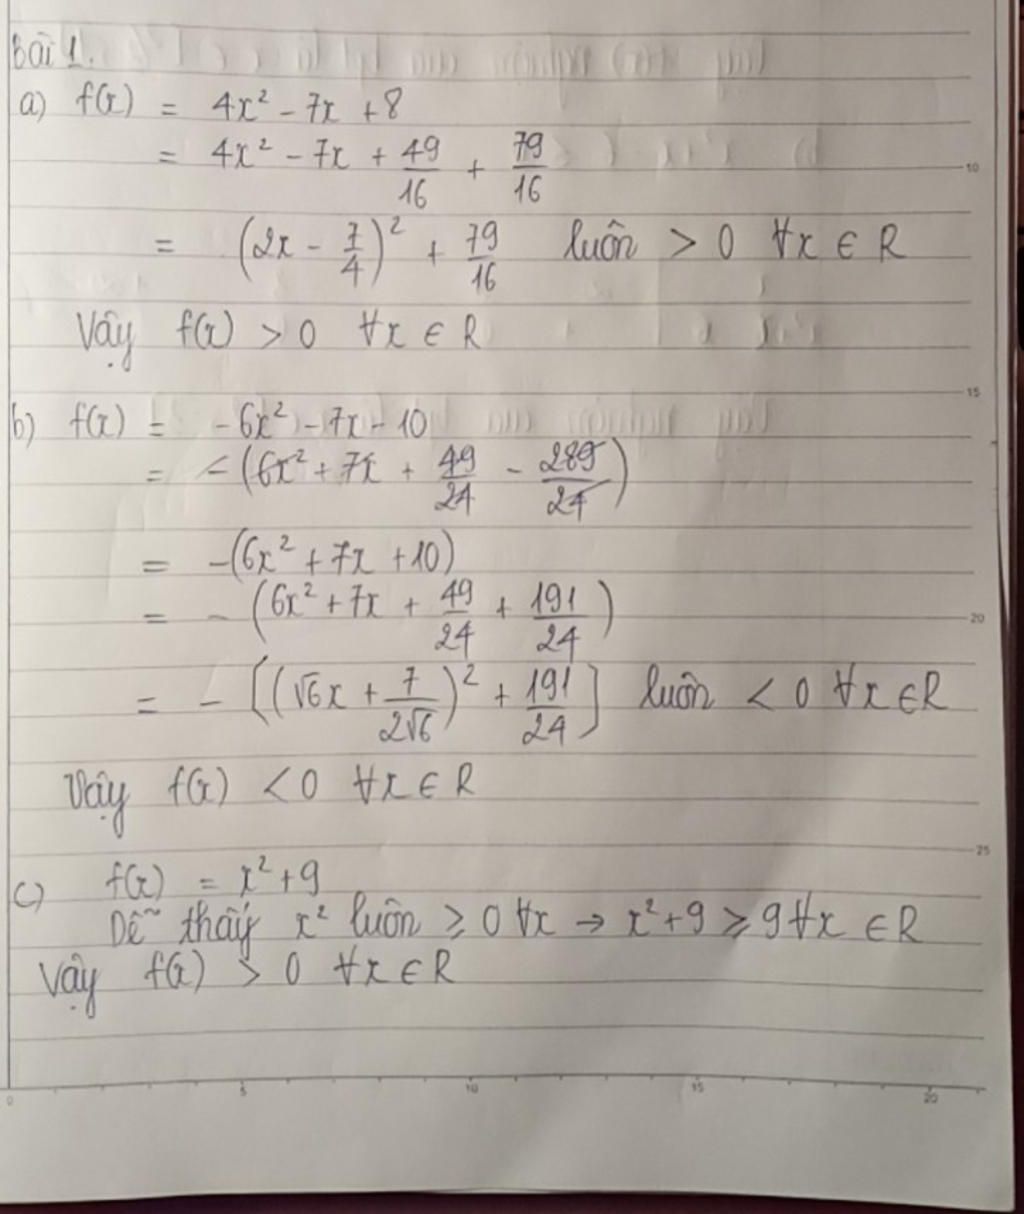 Bài 1.
a) f(x) = 4x² - 7x + 8
= 4x² - 7x + 49/16 + 79/16
= (2x - 7/4)² + 79/16 luôn > 0 ∀x ∈ R
Vậy f(x) > 0 ∀x ∈ R
b) f(x) = - 6x² - 7x - 10
= - (6x² + 7x + 49/24 - 289/24)
= -(6x² + 7x + 10)
= - (6x² + 7x + 49/24 + 191/24)
= - [(√6x + 7/2√6)² + 191/24] luôn < 0 ∀x ∈ R
Vậy f(x) < 0 ∀x ∈ R
c) f(x) = x² + 9
Dễ thấy x² luôn ≥ 0 ∀x → x² + 9 ≥ 9 ∀x ∈ R
Vậy f(x) > 0 ∀x ∈ R
10
15
20
25
0 5 10 15 20